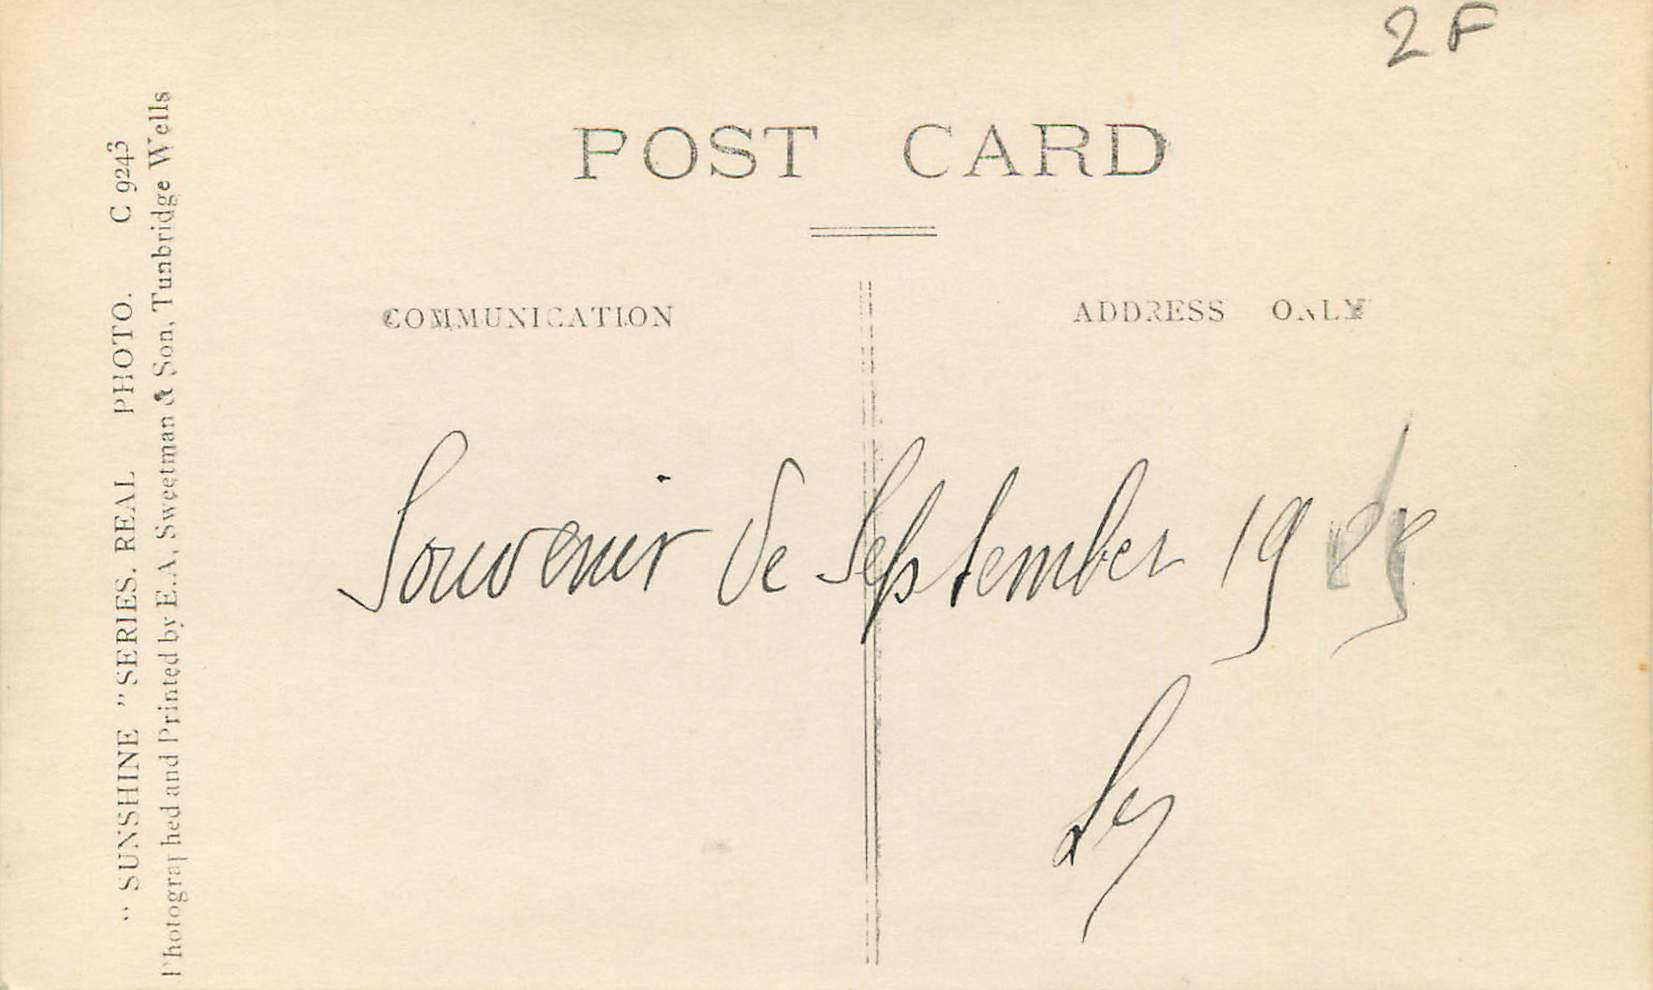 2 F
POST CARD
COMMUNICATION
ADDRESS ONLY
Souvenir de September 19
" SUNSHINE " SERIES. REAL PHOTO. C 9243
Photographed and Printed by E.A. Sweetman & Son, Tunbridge Wells